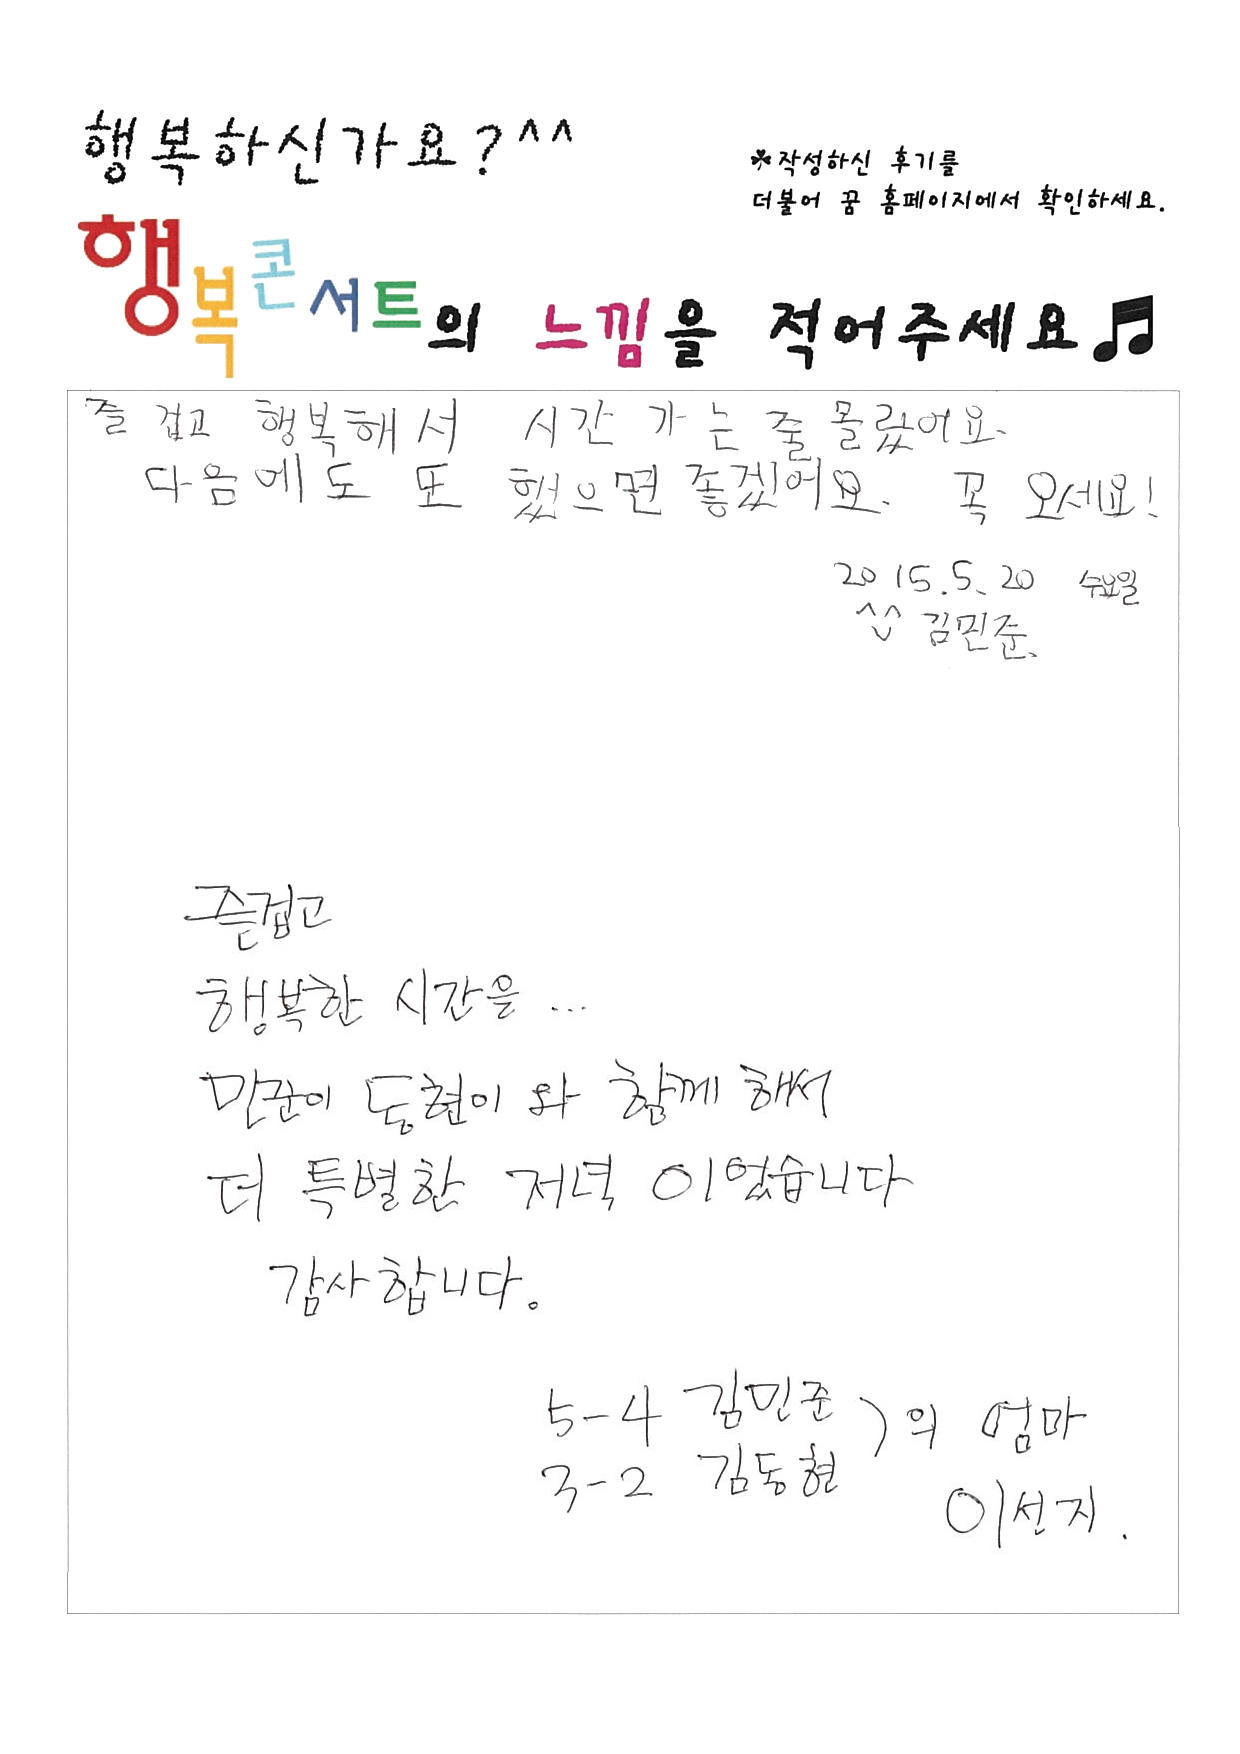 행복하신가요?^^
*작성하신 후기를
더불어 꿈 홈페이지에서 확인하세요.
행복콘서트의 느낌을 적어주세요♫
즐겁고 행복해서 시간 가는 줄 몰랐어요.
다음에도 또 했으면 좋겠어요. 꼭 오세요!
2015.5.20 수요일
^^ 김민준.
즐겁고
행복한 시간을 ...
민준이 동현이와 함께 해서
더 특별한 저녁 이었습니다
감사합니다.
5-4 김민준 ) 의 엄마
3-2 김동현
이선지.